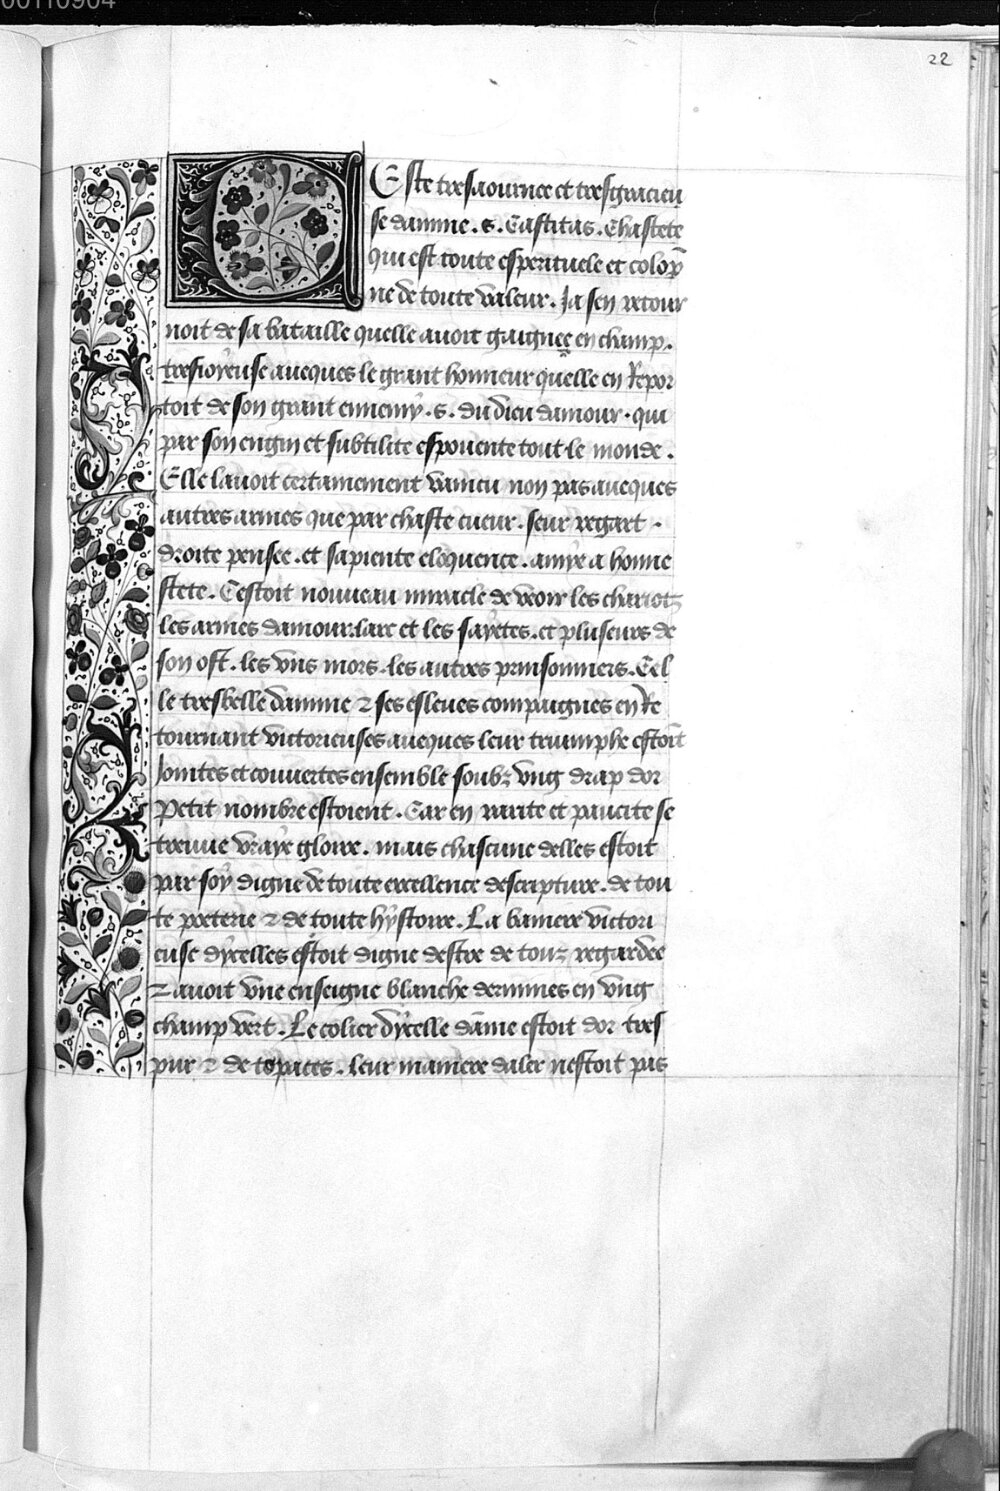 00110904
22
CEste tresaournee et tresgracieu
se damme. s. Castitas. Chastete
qui est toute esperituele et colōp
ne de toute valeur. Ja sen retour
noit de sa bataille quelle auoit gaignee en champ.
tresioyeuse aueques le grant honneur quelle en Repor
toit de son grant ennemy. s. du dieu damour. qui
par son engin et subtilite espouente tout le monde.
Elle lauoit certainement vaincu non pas aueques
autres armes que par chaste cueur. seur regart.
droite pensee. et sapiente eloquence. amye a honne
stete. Cestoit nouueau miracle de veoir les chariotz
les armes damour. larc et les sayetes. et pluseurs de
son ost. les vns mors. les autres prinsonniers. Cel
le tresbelle damme ⁊ ses esleues compaignes en Re
tournant victorieuses aueques leur triumphe estoiēt
Jointes et couuertes ensemble soubz vng drap dor
Petit nombre estoient. Car en rarite et paucite se
treuue vraye gloire. mais chascune delles estoit
par soy digne de toute excellence descripture. de tou
te poeterie ⁊ de toute hystoire. La baniere victori
euse dycelles estoit digne destre de touz regardee
⁊ auoit vne enseigne blanche dermines en vng
champ vert. Le colier dycelle dāme estoit dor tres
pur ⁊ de topaces. leur maniere daler nestoit pas